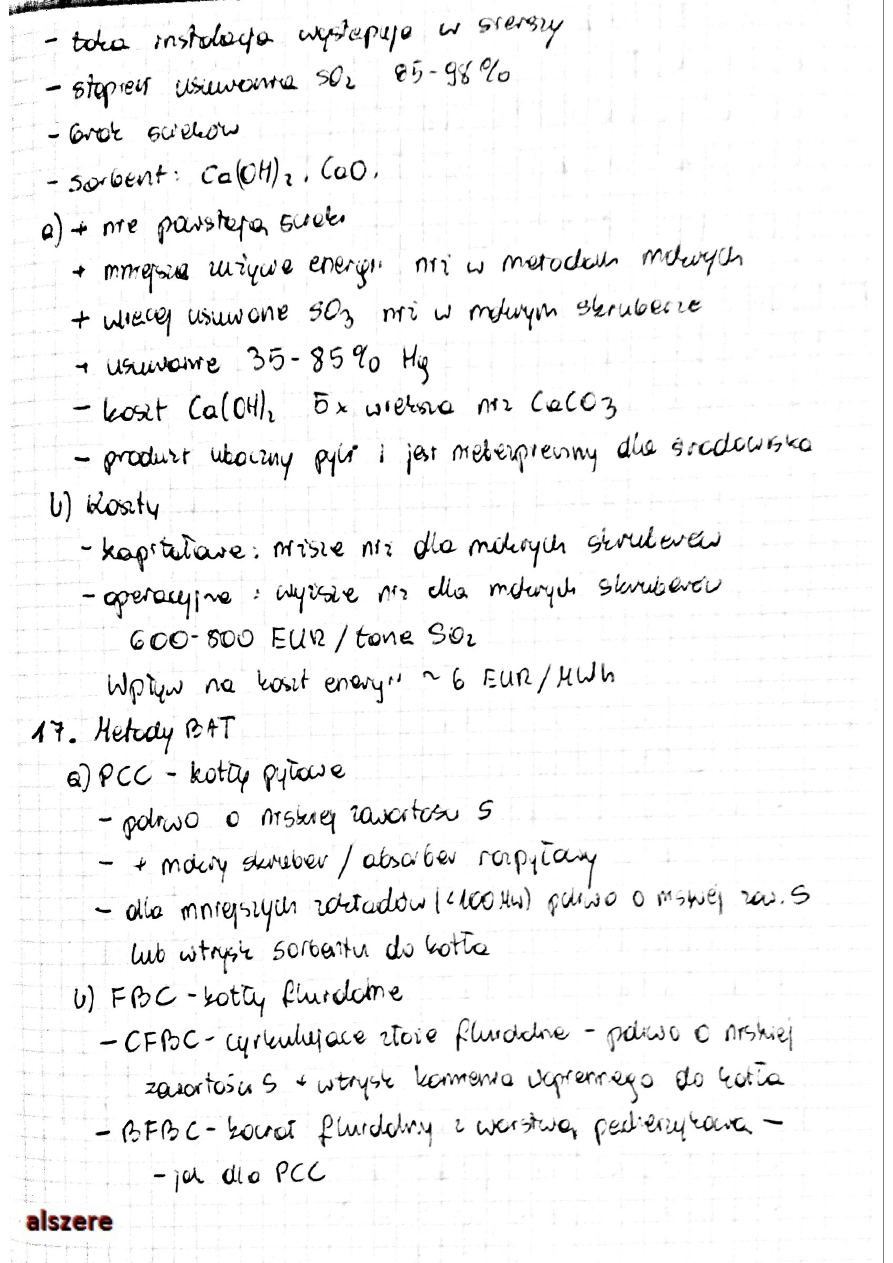 - taka instalacja występuje w Sierszy
- stopień usuwania SO₂ 85-98%
- brak ścieków
- sorbent: Ca(OH)₂, CaO.
a) + nie powstają ścieki
+ mniejsze zużycie energii niż w metodach mokrych
+ więcej usuwane SO₃ niż w mokrym skruberze
+ usuwanie 35-85% Hg
- koszt Ca(OH)₂ 5x większa niż CaCO₃
- produkt uboczny pyli i jest niebezpieczny dla środowiska
b) Koszty
- kapitałowe: niższe niż dla mokrych skruberów
- operacyjne: wyższe niż dla mokrych skruberów
600-800 EUR/tonę SO₂
Wpływ na koszt energii ~ 6 EUR/MWh
17. Metody BAT
a) PCC - kotły pyłowe
- paliwo o niskiej zawartości S
- + mokry skruber / absorber rozpyłowy
- dla mniejszych zakładów (<100 MW) paliwo o niskiej zaw. S
lub wtrysk sorbentu do kotła
b) FBC - kotły fluidalne
- CFBC - cyrkulujące złoże fluidalne - paliwo o niskiej
zawartości S + wtrysk kamienia wapiennego do kotła
- BFBC - kocioł fluidalny z warstwą pęcherzykową -
- jak dla PCC
alszere